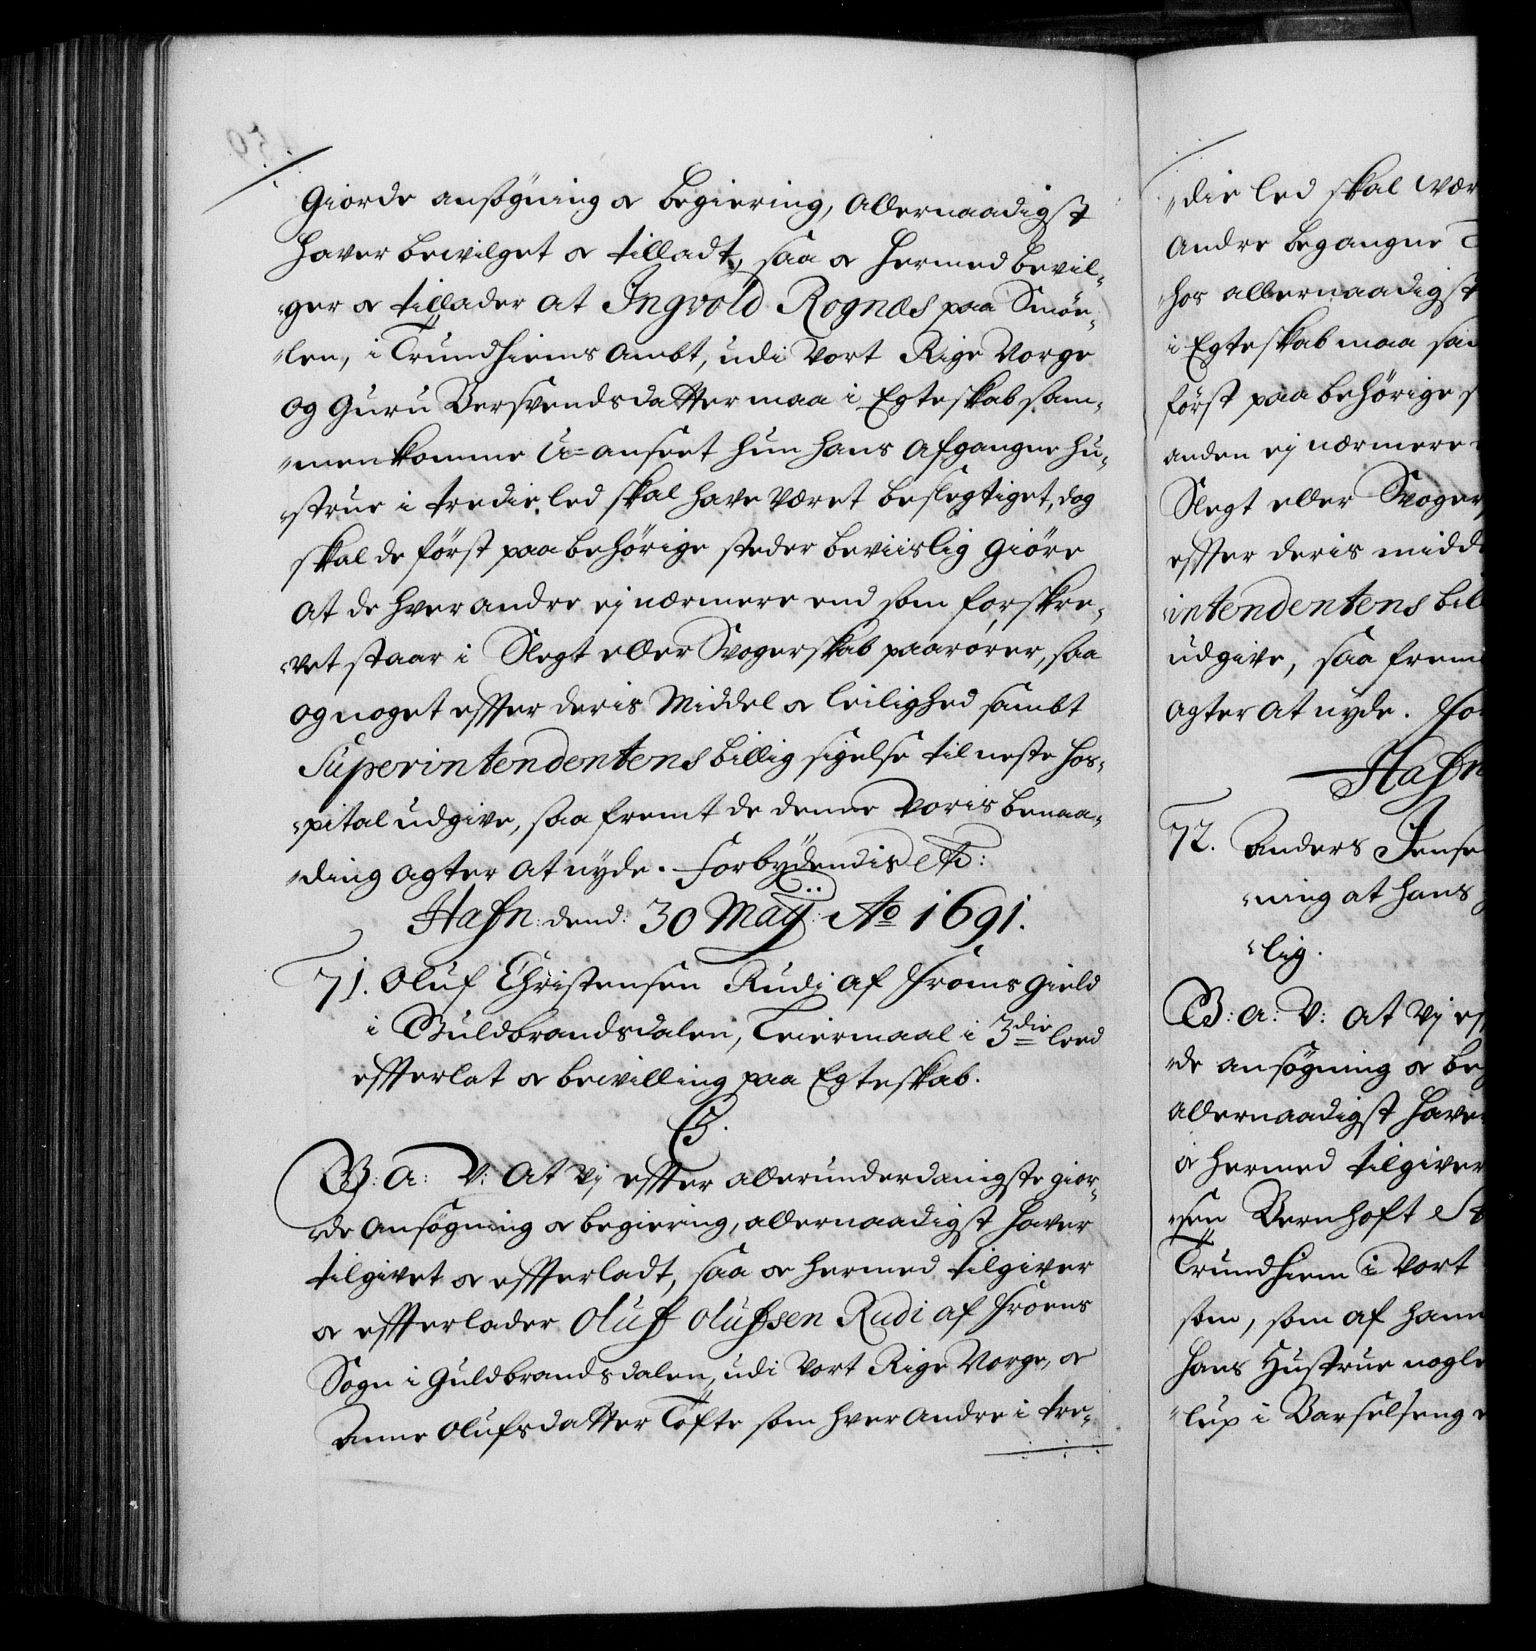 Giorde ansøgning oc begiering, Allernaadigst
hafver bevilget oc tilladt, saa oc hermed bevil-
ger oc tillader at Ingvold Rognæs paa Smøe-
len, i Trundhiems Ambt, udi Vort Rige Norge
og Guru Bersvendsdatter maa i Egteskab sam-
menkomme U-anseet hun hans afgangne hu-
strue i tredie led skal have været beslegtiget, dog
skal de først paa behørige steder beviislig giøre
at de hverandre ej nærmere end som forskre-
vet staar i Slegt eller Svogerskab paarører, saa
og noget effter deris Middel oc leilighed sambt
Superintendentens billig sigelse til neste Hos-
pital udgive, saa fremt de denne Voris benaa-
ding agter at nyde. Forbydendis etc:
Hafn: dend: 30 Maÿ: Ao 1691.
71. Oluf Christensen Rudi af Froms gield
i Guldbrandsdalen, Leiermaal i 3die leed
effterlat oc bevilling paa Egteskab.
C5.
G: A: V: At Vj effter allerunderdanigste gior-
de Ansøgning oc begiering, allernaadigst hafver
tilgivet oc effterladt, saa oc hermed tilgiver
oc effterlader Oluf Olufsen Rudi af Froens
Sogn i Guldbrandsdalen, udi Vort Rige Norge, oc
Anne Olufsdatter Tofte som hver andre i tre-
die led skal vær
andre begangne
hos allernaadigst
i Egteskab maa sam
først paa behørige s
anden ej nærmere
Slegt eller Svoger
effter deris midd
intendentens bil
udgive, saa frem
agter at nyde. For
Hafn
72. Anders Jense
ning at hans
lig.
G: A: V: At Vj ef
de ansøgning oc beg
allernaadigst have
oc hermed tilgiver
sen Bernhoft
Trundhiem i Vort
som, som af ham
hans Hustrue nogle
lup i Barselseng